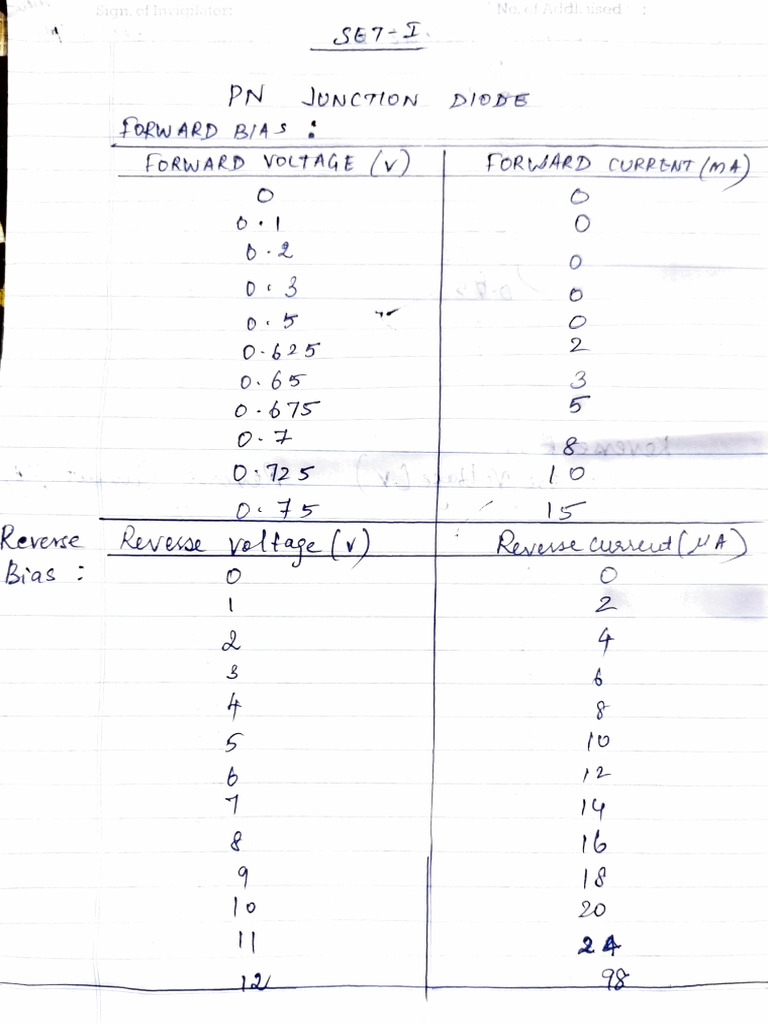 Sign. of Invigilator: No. of Addl. used :
SET-I
PN JUNCTION DIODE
FORWARD BIAS :
FORWARD VOLTAGE (V) FORWARD CURRENT (MA)
0 0
0.1 0
0.2 0
0.3 0
0.5 0
0.625 2
0.65 3
0.675 5
0.7 8
0.725 10
0.75 15
Reverse Bias : Reverse voltage (V) Reverse current (μA)
0 0
1 2
2 4
3 6
4 8
5 10
6 12
7 14
8 16
9 18
10 20
11 24
12 98